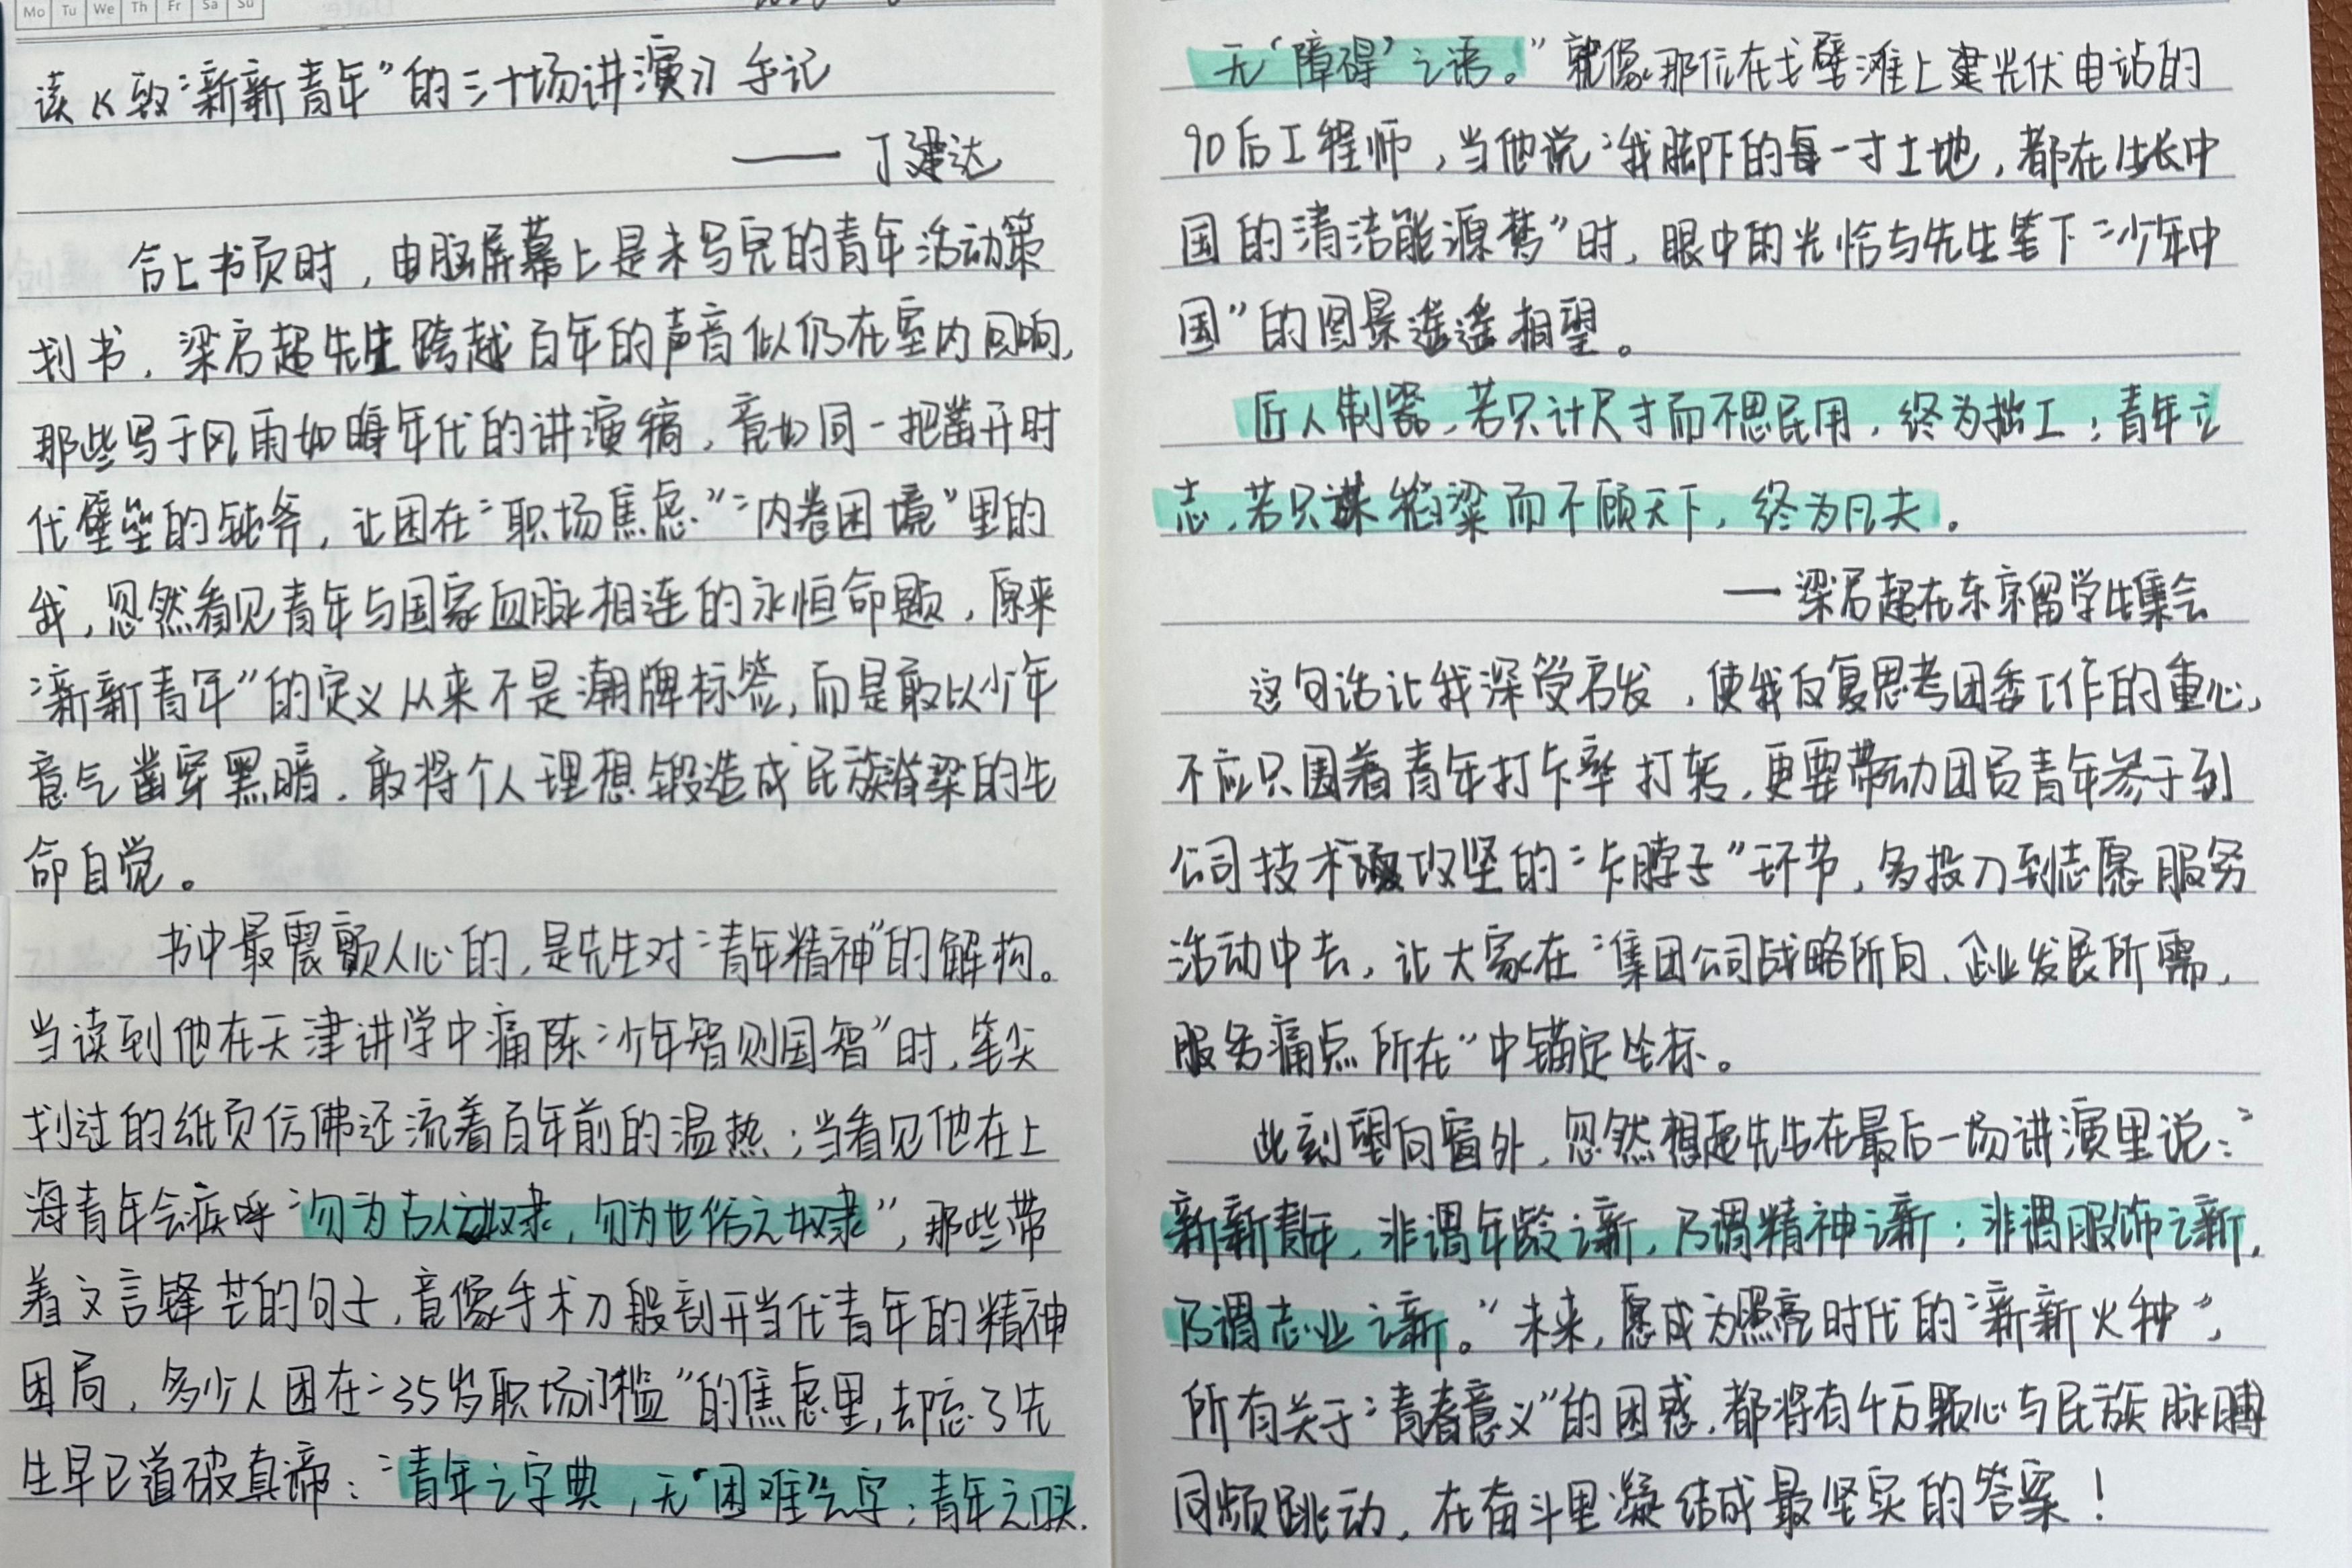 Mo Tu We Th Fr Sa Su
读《致“新新青年”的三十场讲演》手记
—— 丁建达
合上书页时，电脑屏幕上是未写完的青年活动策
划书，梁启超先生跨越百年的声音似仍在室内回响，
那些写于风雨如晦年代的讲演稿，竟如同一把凿开时
代壁垒的钝斧，让困在“职场焦虑”“内卷困境”里的
我，忽然看见青年与国家血脉相连的永恒命题，原来
“新新青年”的定义从来不是潮牌标签，而是敢以少年
意气凿穿黑暗，敢将个人理想锻造成民族脊梁的生
命自觉。
书中最震颤人心的，是先生对“青年精神”的解构。
当读到他在天津讲学中痛陈“少年智则国智”时，笔尖
划过的纸页仿佛还流着百年前的温热；当看见他在上
海青年会疾呼“勿为古人之奴隶，勿为世俗之奴隶”，那些带
着文言锋芒的句子，竟像手术刀般剖开当代青年的精神
困局，多少人困在“35岁职场门槛”的焦虑里，却忘了先
生早已道破真谛：“青年之字典，无“困难”之字；青年之口头，
无“障碍”之语。”就像那位在戈壁滩上建光伏电站的
90后工程师，当他说“我脚下的每一寸土地，都在生长中
国的清洁能源梦”时，眼中的光恰与先生笔下“少年中
国”的图景遥遥相望。
匠人制器，若只计尺寸而不思民用，终为拙工；青年立
志，若只谋稻粱而不顾天下，终为凡夫。
— 梁启超在东京留学生集会
这句话让我深受启发，使我反复思考团委工作的重心，
不应只围着青年打卡率打转，更要带动团员青年参于到
公司技术攻坚的“卡脖子”环节，多投入到志愿服务
活动中去，让大家在“集团公司战略所向、企业发展所需，
服务痛点所在”中锚定坐标。
此刻望向窗外，忽然想起先生在最后一场讲演里说：“
新新青年，非谓年龄之新，乃谓精神之新；非谓服饰之新，
乃谓志业之新。”未来，愿成为照亮时代的“新新火种”，
所有关于“青春意义”的困惑，都将有千万颗心与民族脉搏
同频跳动，在奋斗里凝结成最坚实的答案！